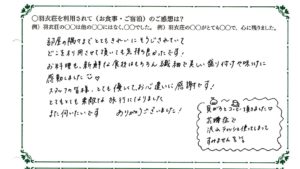 ◯羽衣荘を利用されて（お食事・ご宿泊）のご感想は？
例）羽衣荘の○○は他の○○にはなく、○○でした。 例）羽衣荘の○○がとても○○で、心に残りました。
部屋の隅々までとてもきれいにそうじされていて
どこをより用させて頂いても気持ち良かったです！
お料理も、新鮮な食材はもちろん繊細で美しい盛り付けや味付に
感動しました
スタッフの皆様、とても優しくて、お心遣いに感謝です！
とてもとても素敵な旅行になりました
また伺いたいです ありがとうございました！
貝がらとコーヒー頂きました♡
花瓶台で
沢山ティッシュ使ってしまって
すみません